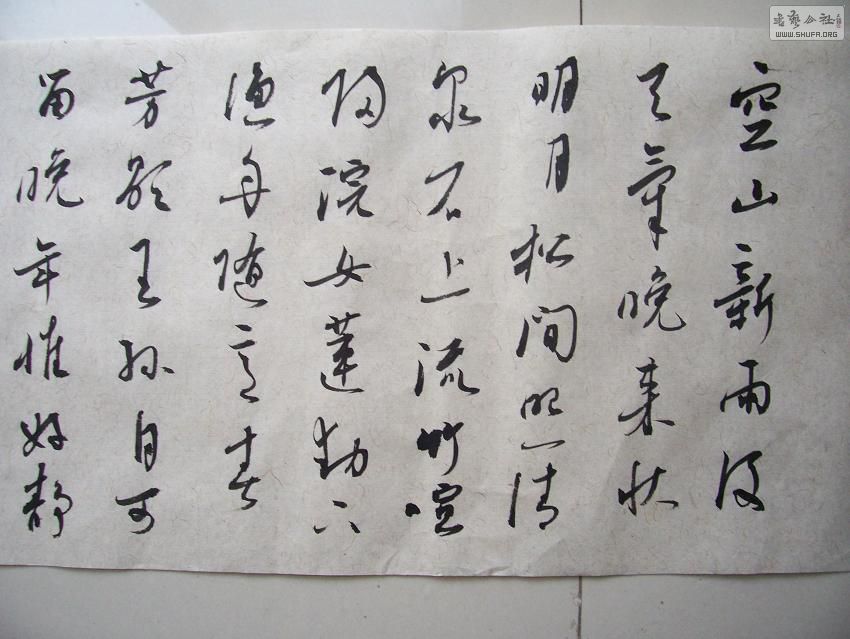 空山新雨後
天氣晚来秋
明月松间照清
泉石上流竹喧
归浣女蓮動下
渔舟随意春
芳歇王孙自可
留晚年惟好静
書藝公社
WWW.SHUFA.ORG